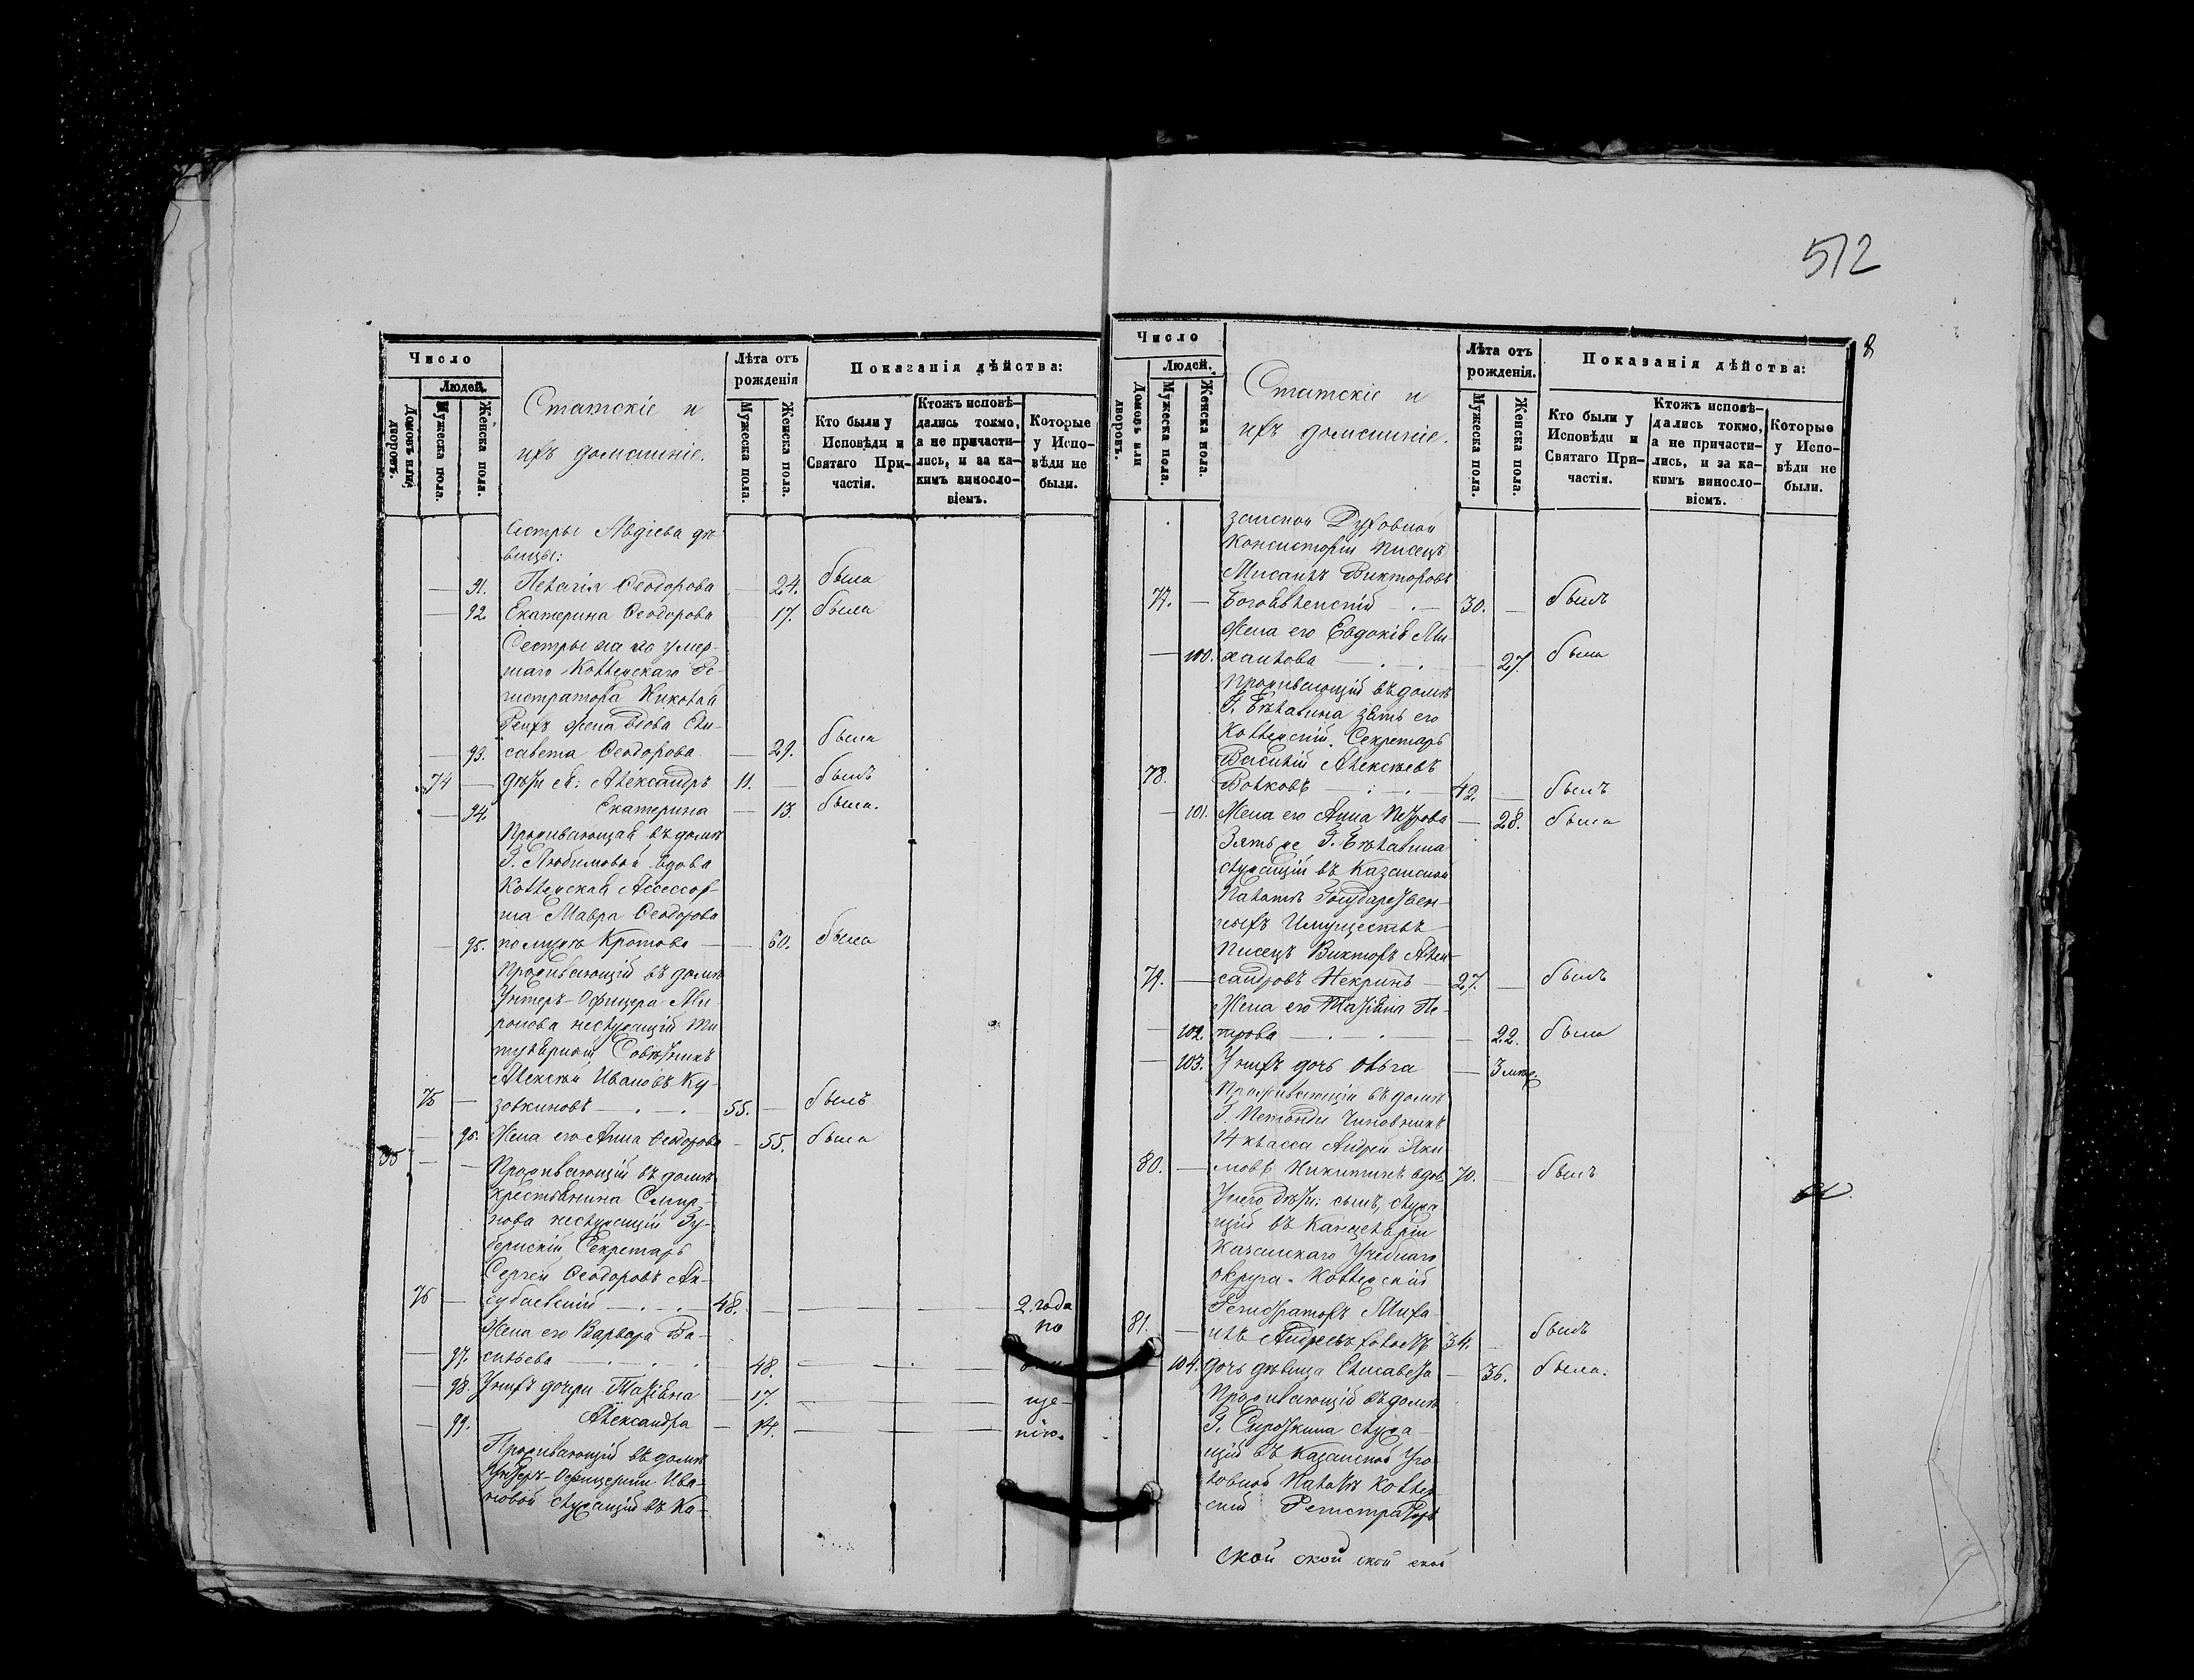 512
8
Число
Людей.
Домовъ или дворовъ.
Мужеска пола.
Женска пола.
Статскіе и
ихъ домашніе.
Лѣта отъ рожденія
Мужеска пола.
Женска пола.
Показанія дѣйства:
Кто были у Исповѣди и Святаго При-частія.
Ктожъ исповѣ-дались токмо, а не причасти-лись, и за ка-кимъ винословіемъ.
Которые у Испо-вѣди не были.
Сестры Авдіева дѣ-
вицы:
— 91. Пелагія Ѳеодорова — 24. была
— 92. Екатерина Ѳеодорова — 17. была
Сестры же по умер-
шаго Коллежскаго Ре-
гистратора Николая
жена вдова Ели-
— 93. савета Ѳеодорова — 29. была
74 — дѣти ея: Александръ 11. — былъ
— 94. Екатерина — 13. была.
Проживающая въ домѣ
Г. Любимовой вдова
Коллежская Ассессор-
ша Мавра Ѳеодорова
— 95. по мужѣ Кротова — 60. была
Проживающій въ домѣ
Унтеръ-Офицера Ми-
ронова неслужащій Ти-
тулярный Совѣтникъ
Алексѣй Ивановъ Ку-
75 — зовкиновъ 55. — былъ
— 95. Жена его Анна Ѳеодорова — 55. была
35 — — Проживающій въ домѣ
крестьянина Смир-
нова неслужащій Гу-
бернскій Секретарь
Сергей Ѳеодоровъ Ак-
76 — субаевскій 48. — — — 2. года
Жена его Варвара Ва- по
— 97. сильева 48. — —
— 98. У нихъ дочери Татіана — 17. — — — ще-
— 99. Александра — 14. — — — нію.
Проживающій въ домѣ
Унтеръ-Офицерши Ива-
новой служащій въ Ка-
Число
Людей.
Домовъ или дворовъ.
Мужеска пола.
Женска пола.
Статскіе и
ихъ домашніе.
Лѣта отъ рожденія.
Мужеска пола.
Женска пола.
Показанія дѣйства:
Кто были у Исповѣди и Святаго При-частія.
Ктожъ исповѣ-дались токмо, а не причасти-лись, и за ка-кимъ винословіемъ.
Которые у Испо-вѣди не были.
занской Духовной
Консисторіи писецъ
Мисаилъ Викторовъ
77. — Богоявленскій 30. — былъ
Жена его Евдокія Ми-
— 100. хаилова — 27. была
Проживающій въ домѣ
Г. Бѣлавина зять его
Коллежскій Секретарь
Василій Алексѣевъ
78. Волковъ 42. — былъ
— 101. Жена его Анна Петрова — 28. была
Зять же Г. Бѣлавина
служащій въ Казанской
Палатѣ Государствен-
ныхъ Имуществъ
писецъ Викторъ Алек-
79. — сандровъ Некринъ — 27. — былъ
Жена его Татіана Пе-
— 102. трова — 22. была
— 103. У нихъ дочь Ольга — 3 мѣс.
Проживающій въ домѣ
Г. Петонди Чиновникъ
14 класса Андрей Яки
80. — мовъ Никитинъ вдов. 70. — былъ
У него дѣти: сынъ, служа
щій въ Канцеляріи
Казанскаго Учебнаго
округа Коллежскій
Регистраторъ Миха-
81. — илъ Андреевъ холостъ 34. — былъ
104. дочь дѣвица Елисавета — 36. была.
Проживающій въ домѣ
Г. Сироткина служа-
щій въ Казанской Уго-
ловной Палатѣ Коллеж-
скій Регистраторъ
ской ской ской ской